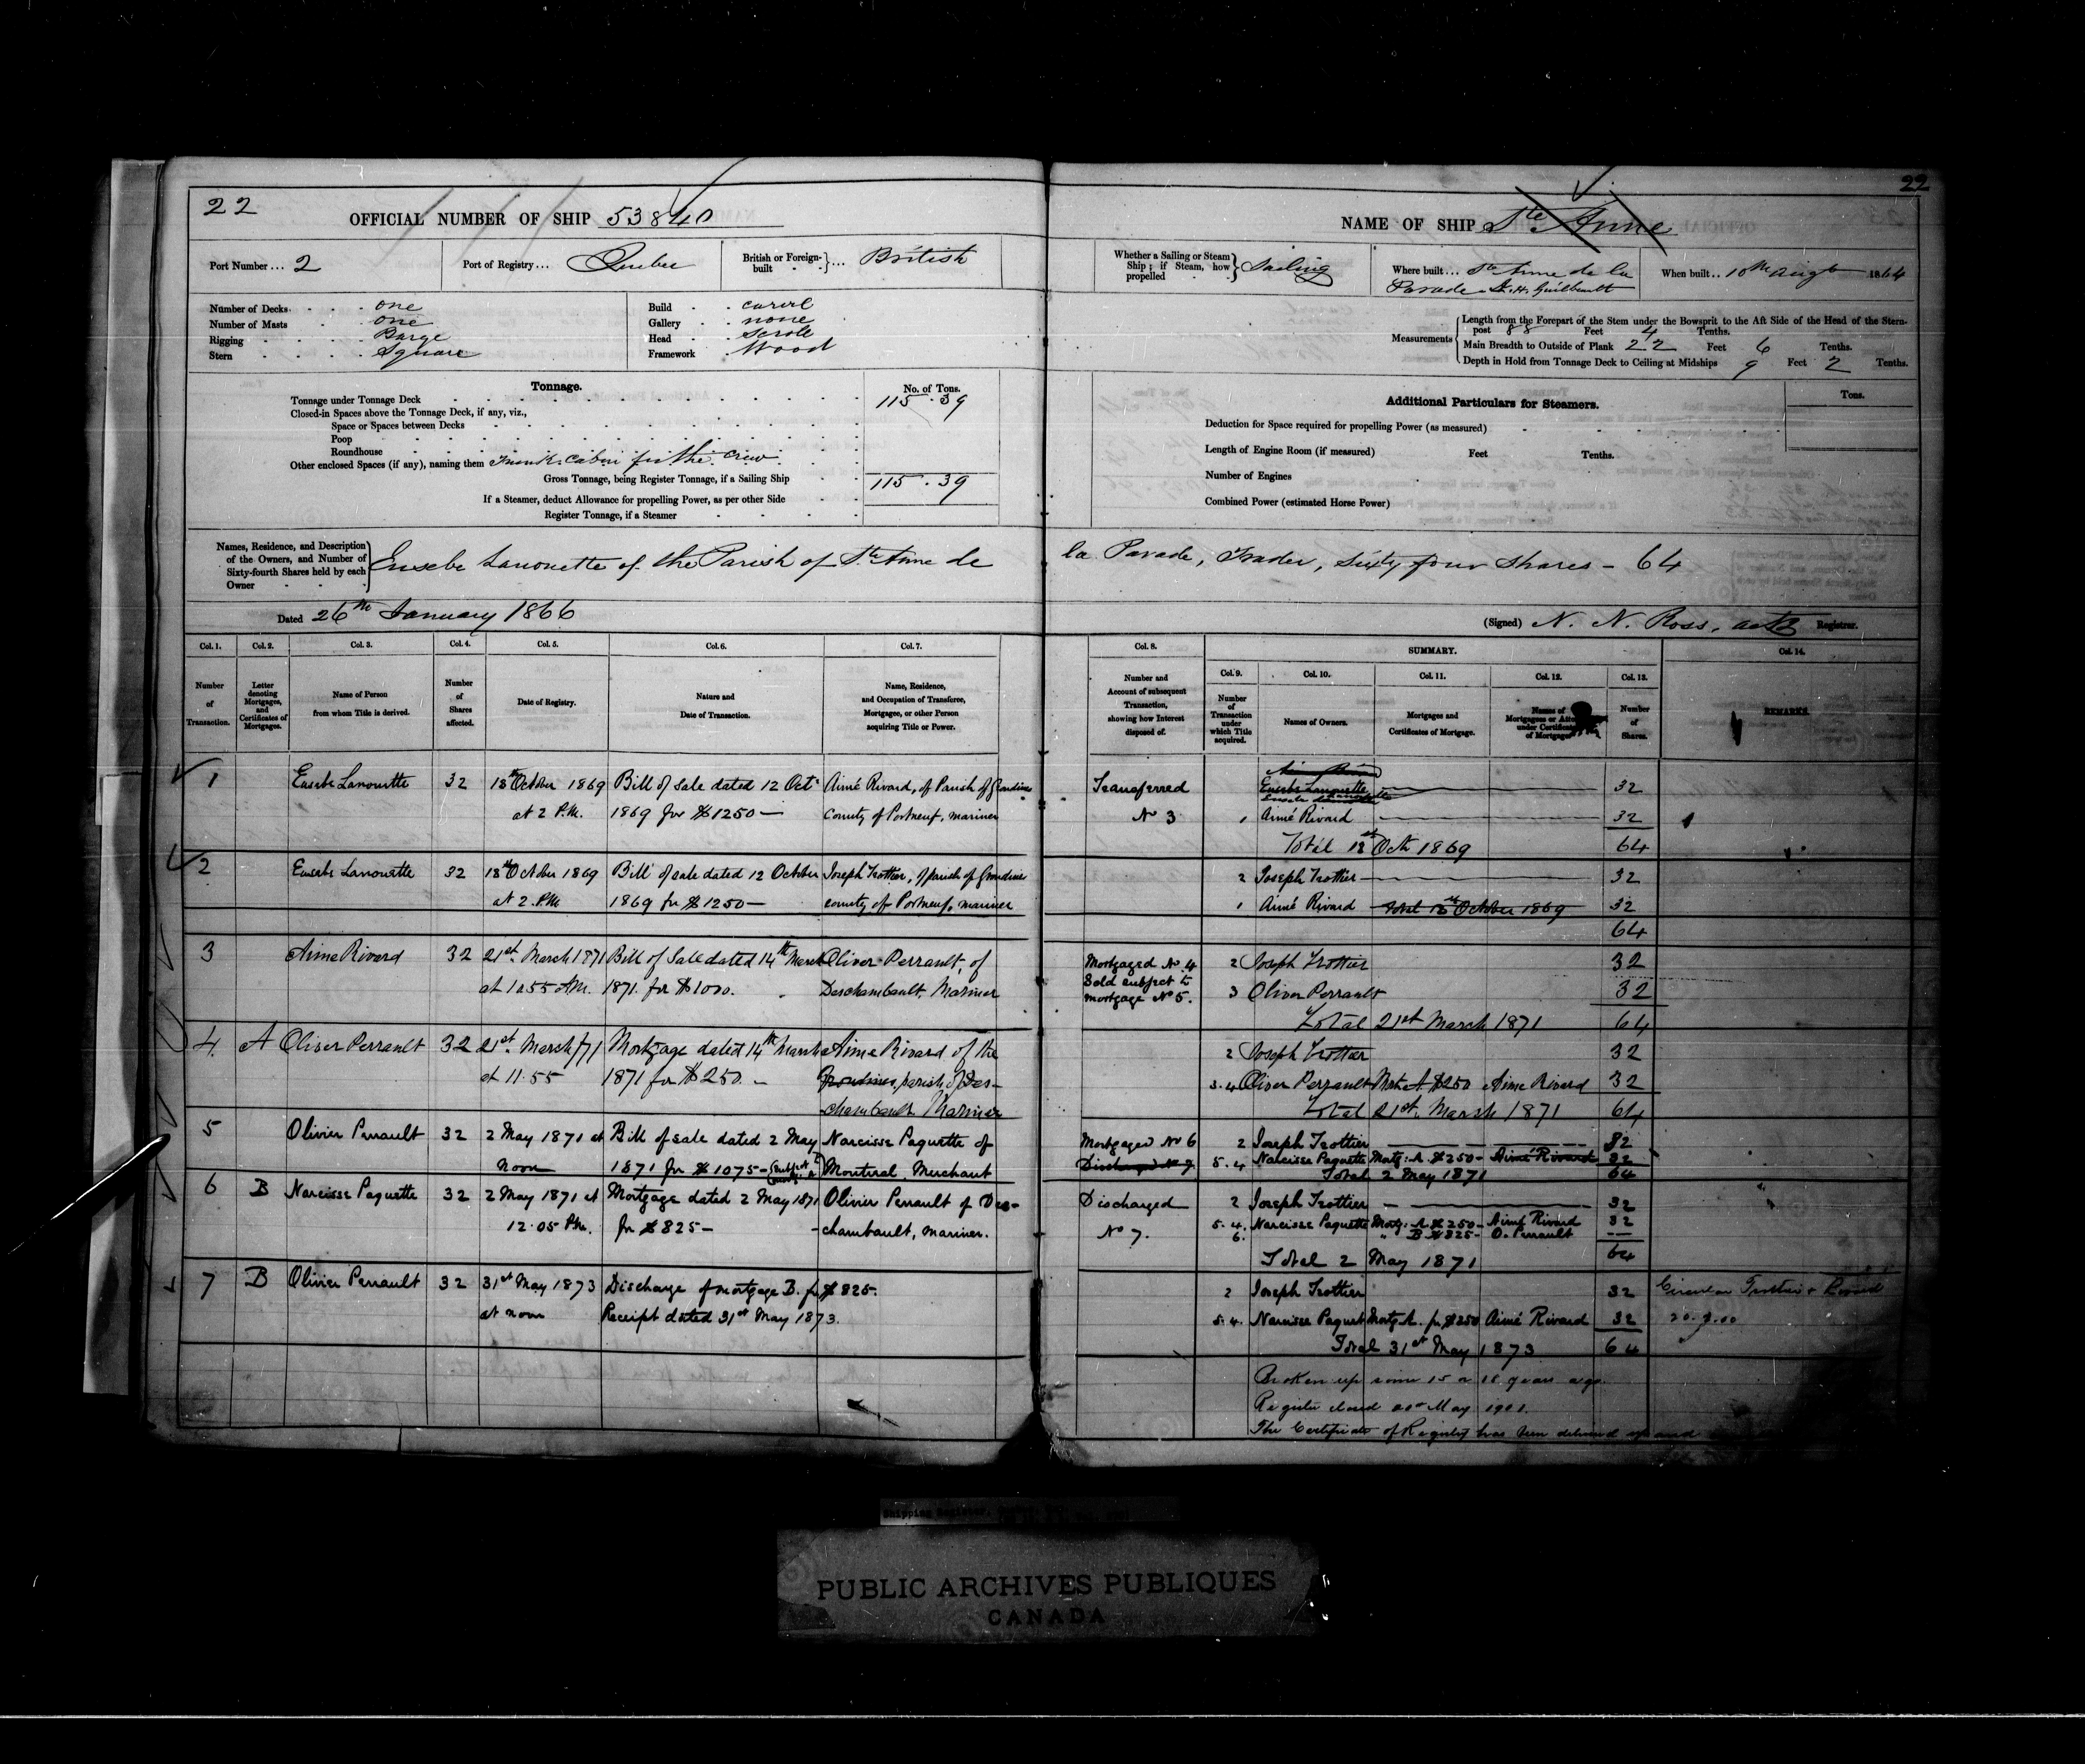 22
OFFICIAL NUMBER OF SHIP 53840
Port Number ... 2
Port of Registry ... Quebec
British or Foreign-built ... British
Number of Decks one
Number of Masts one
Rigging Barge
Stern Square
Build carvel
Gallery none
Head Scroll
Framework Wood
Tonnage.
No. of Tons.
Tonnage under Tonnage Deck 115.39
Closed-in Spaces above the Tonnage Deck, if any, viz.,
Space or Spaces between Decks
Poop
Roundhouse
Other enclosed Spaces (if any), naming them Trunk cabin for the crew
Gross Tonnage, being Register Tonnage, if a Sailing Ship 115.39
If a Steamer, deduct Allowance for propelling Power, as per other Side
Register Tonnage, if a Steamer
22
NAME OF SHIP Ste Anne
Whether a Sailing or Steam Ship; if Steam, how propelled Sailing
Where built ... Ste Anne de la
Parade Guilbeault
When built .. 10th Augt 1864
Measurements
Length from the Forepart of the Stem under the Bowsprit to the Aft Side of the Head of the Stern-
post 88 Feet 4 Tenths.
Main Breadth to Outside of Plank 22 Feet 6 Tenths.
Depth in Hold from Tonnage Deck to Ceiling at Midships 9 Feet 2 Tenths.
Additional Particulars for Steamers.
Tons.
Deduction for Space required for propelling Power (as measured)
Length of Engine Room (if measured) Feet Tenths.
Number of Engines
Combined Power (estimated Horse Power)
Names, Residence, and Description
of the Owners, and Number of
Sixty-fourth Shares held by each
Owner
Eusebe Lanouette of the Parish of Ste Anne de la Parade, Trader, Sixty four Shares - 64
Dated 26th January 1866
(Signed) N. N. Ross, Registrar.
Col. 1. Col. 2. Col. 3. Col. 4. Col. 5. Col. 6. Col. 7.
Number of Transaction.
Letter denoting Mortgages, and Certificates of Mortgages.
Name of Person from whom Title is derived.
Number of Shares affected.
Date of Registry.
Nature and Date of Transaction.
Name, Residence, and Occupation of Transferee, Mortgagee, or other Person acquiring Title or Power.
Col. 8. SUMMARY. Col. 14.
Col. 9. Col. 10. Col. 11. Col. 12. Col. 13.
Number and Account of subsequent Transaction, showing how Interest disposed of.
Number of Transaction under which Title acquired.
Names of Owners.
Mortgages and Certificates of Mortgage.
Names of Mortgagees or under Certificate of Mortgage
Number of Shares.
REMARKS.
1 Eusebe Lanouette 32 18th October 1869 Bill of Sale dated 12 Octr Aimé Rivard, of Parish of Grondines
at 2 P.M. 1869 for $1250 — county of Portneuf, mariner
2 Eusebe Lanouette 32 18th October 1869 Bill of sale dated 12 October Joseph Trottier, of parish of Grondines
at 2 P.M. 1869 for $1250 — county of Portneuf, mariner
3 Aime Rivard 32 21st March 1871 Bill of Sale dated 14th March Oliver Perrault, of
at 10.55 AM. 1871 for $1000. Deschambault, Mariner
4 A Oliver Perrault 32 21st March /71 Mortgage dated 14th March Aime Rivard of the
at 11.55 1871 for $250. — Grondines, parish of Des-
chambault Mariner
5 Olivier Perrault 32 2 May 1871 at Bill of sale dated 2 May Narcisse Paquette of
noon 1871 for $1075 — Montreal, Merchant
6 B Narcisse Paquette 32 2 May 1871 at Mortgage dated 2 May 1871 Olivier Perrault of Des-
12.05 P.M. for $825 — chambault, mariner.
7 B Olivier Perrault 32 31st May 1873 Discharge of mortgage B. for $825.
at noon Receipt dated 31st May 1873.
Transferred Eusebe Lanouette 32
No 3 1 Aimé Rivard 32
Total 18th Octr 1869 64
2 Joseph Trottier 32
1 Aimé Rivard Total 18th October 1869 32
64
Mortgaged No. 4 2 Joseph Trottier 32
Sold subject to
mortgage No 5. 3 Oliver Perrault 32
Total 21st March 1871 64
2 Joseph Trottier 32
3.4 Oliver Perrault Mort. A $250 Aime Rivard 32
Total 21st March 1871 64
Mortgaged No 6 2 Joseph Trottier 32
Discharged No 7 5.4 Narcisse Paquette Mortg: A $250 - Aimé Rivard 32
Total 2 May 1871 64
Discharged 2 Joseph Trottier 32
No 7. 5.4. Narcisse Paquette Mortg: A $250 - Aimé Rivard 32
6. " B $825 - O. Perrault
Total 2 May 1871 64
2 Joseph Trottier 32 Trottier & Rivard
5.4. Narcisse Paquet Mortg A. for $250 Aimé Rivard 32 20.9.00
Total 31st May 1873 64
Broken up some 15 or 18 years ago.
Register closed May 1901.
The Certificate of Registry has been delivered up and
Shipping Register,
PUBLIC ARCHIVES PUBLIQUES
CANADA